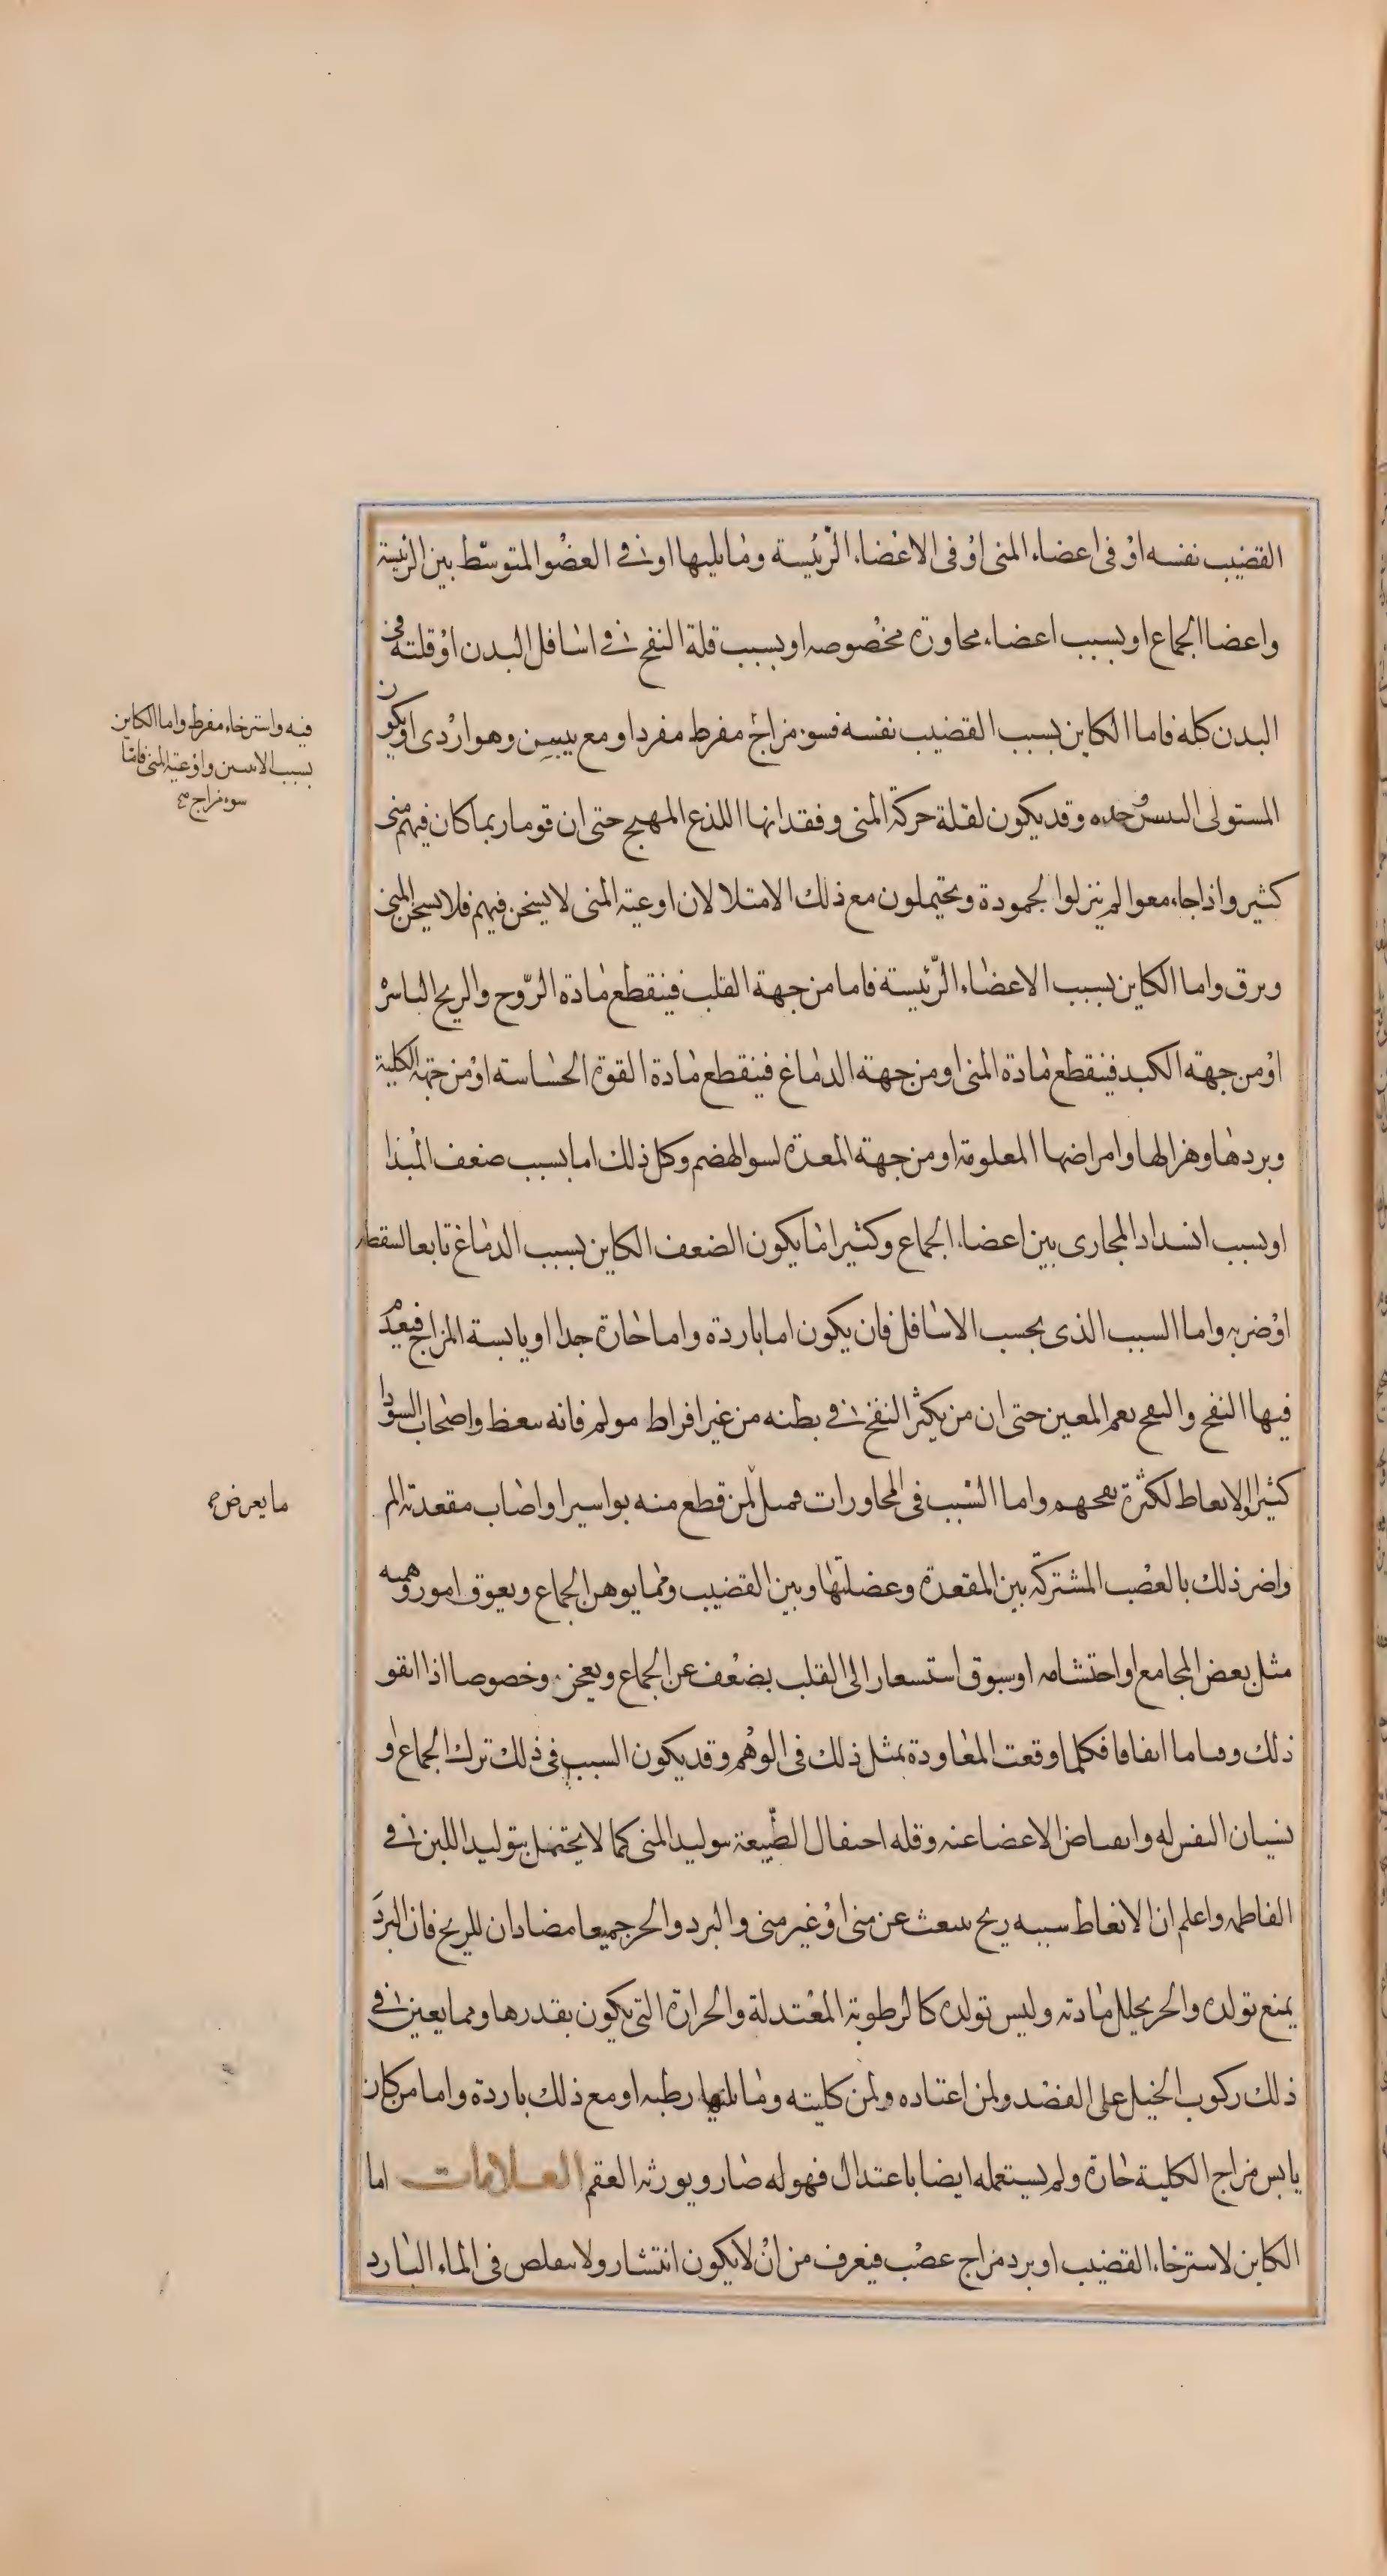 القضيب نفسه او في اعضاء المنى او في الاعضاء الرئيسة وما يليها او في العضو المتوسط بين الرئيسة
واعضا الجماع او بسبب اعضاء مجاورة مخصوصه او بسبب قلة النفخ في اسافل البدن او قلته في
البدن كله فاما الكاين بسبب القضيب نفسه فسوء مزاج مفرط مفرد او مع يبس وهو اردى او يكون
المستولى اليبس وحده وقد يكون لقلة حركة المنى وفقدانها اللذع المهيج حتى ان قوما ربما كان فيهم منى
كثير واذا جاءمعوا لم ينزلوا لجمودة ويحتملون مع ذلك الامتلا لان اوعية المنى لا يسخن فيهم فلا يسخن المنى
ويرق واما الكاين بسبب الاعضاء الرئيسة فاما من جهة القلب فينقطع مادة الروح والريح الناشر
او من جهة الكبد فينقطع مادة المنى او من جهة الدماغ فينقطع مادة القوة الحساسة او من جهة الكلية
وبردها وهزالها وامراضها المعلومة او من جهة المعدة لسو الهضم وكل ذلك اما بسبب ضعف المبدا
او بسبب انسداد المجارى بين اعضاء الجماع وكثيرا ما يكون الضعف الكاين بسبب الدماغ تابعا لسقطه
او ضربه واما السبب الذى بحسب الاسافل فان يكون اما باردة واما حارة جدا او يابسة المزاج فيعدم
فيها النفخ والنفخ نعم المعين حتى ان من يكثر النفخ في بطنه من غير افراط مولم فانه ينعظ واصحاب السودا
كثيرا الانعاط لكثرة نفخهم واما السبب في المجاورات فمثل لمن قطع منه بواسير او اصاب مقعدته الم
واضر ذلك بالعصب المشتركة بين المقعدة وعضلتها وبين القضيب ومما يوهن الجماع ويعوق امور وهميه
مثل بعض المجامع او احتشامه او سبوق استسعار الى القلب بضعف عن الجماع ويعجز وخصوصا اذا اتفق
ذلك وقتا ما اتفاقا فكلما وقعت المعاودة بمثل ذلك في الوهم وقد يكون السبب في ذلك ترك الجماع و
نسيان النفس له وانقباض الاعضا عنه وقله احتفال الطبيعة بتوليد المنى كما لا يحتفل بتوليد اللبن في
الفاطمه واعلم ان الانعاط سببه ريح تنبعث عن منى او غير منى والبرد والحر جميعا مضادان للريح فان البرد
يمنع تولده والحر يحلل مادته وليس تولده كالرطوبة المعتدلة والحرارة التى يكون بقدرها ومما يعين في
ذلك ركوب الخيل على القصد ولمن اعتاده ولمن كليته وما يليها رطبه او مع ذلك باردة واما من كان
يابس مزاج الكلية حارة ولم يستعمله ايضا باعتدال فهو له ضار ويورثه العقم العلامات اما
الكاين لاسترخاء القضيب او برد مزاج عصب فيعرف من ان لا يكون انتشار ولا يتقلص في الماء البارد
فيه واسترخاء مفرط واما الكاين
بسبب الانثيين واوعية المنى فاما
سوء مزاج صح
ما يعرض صح